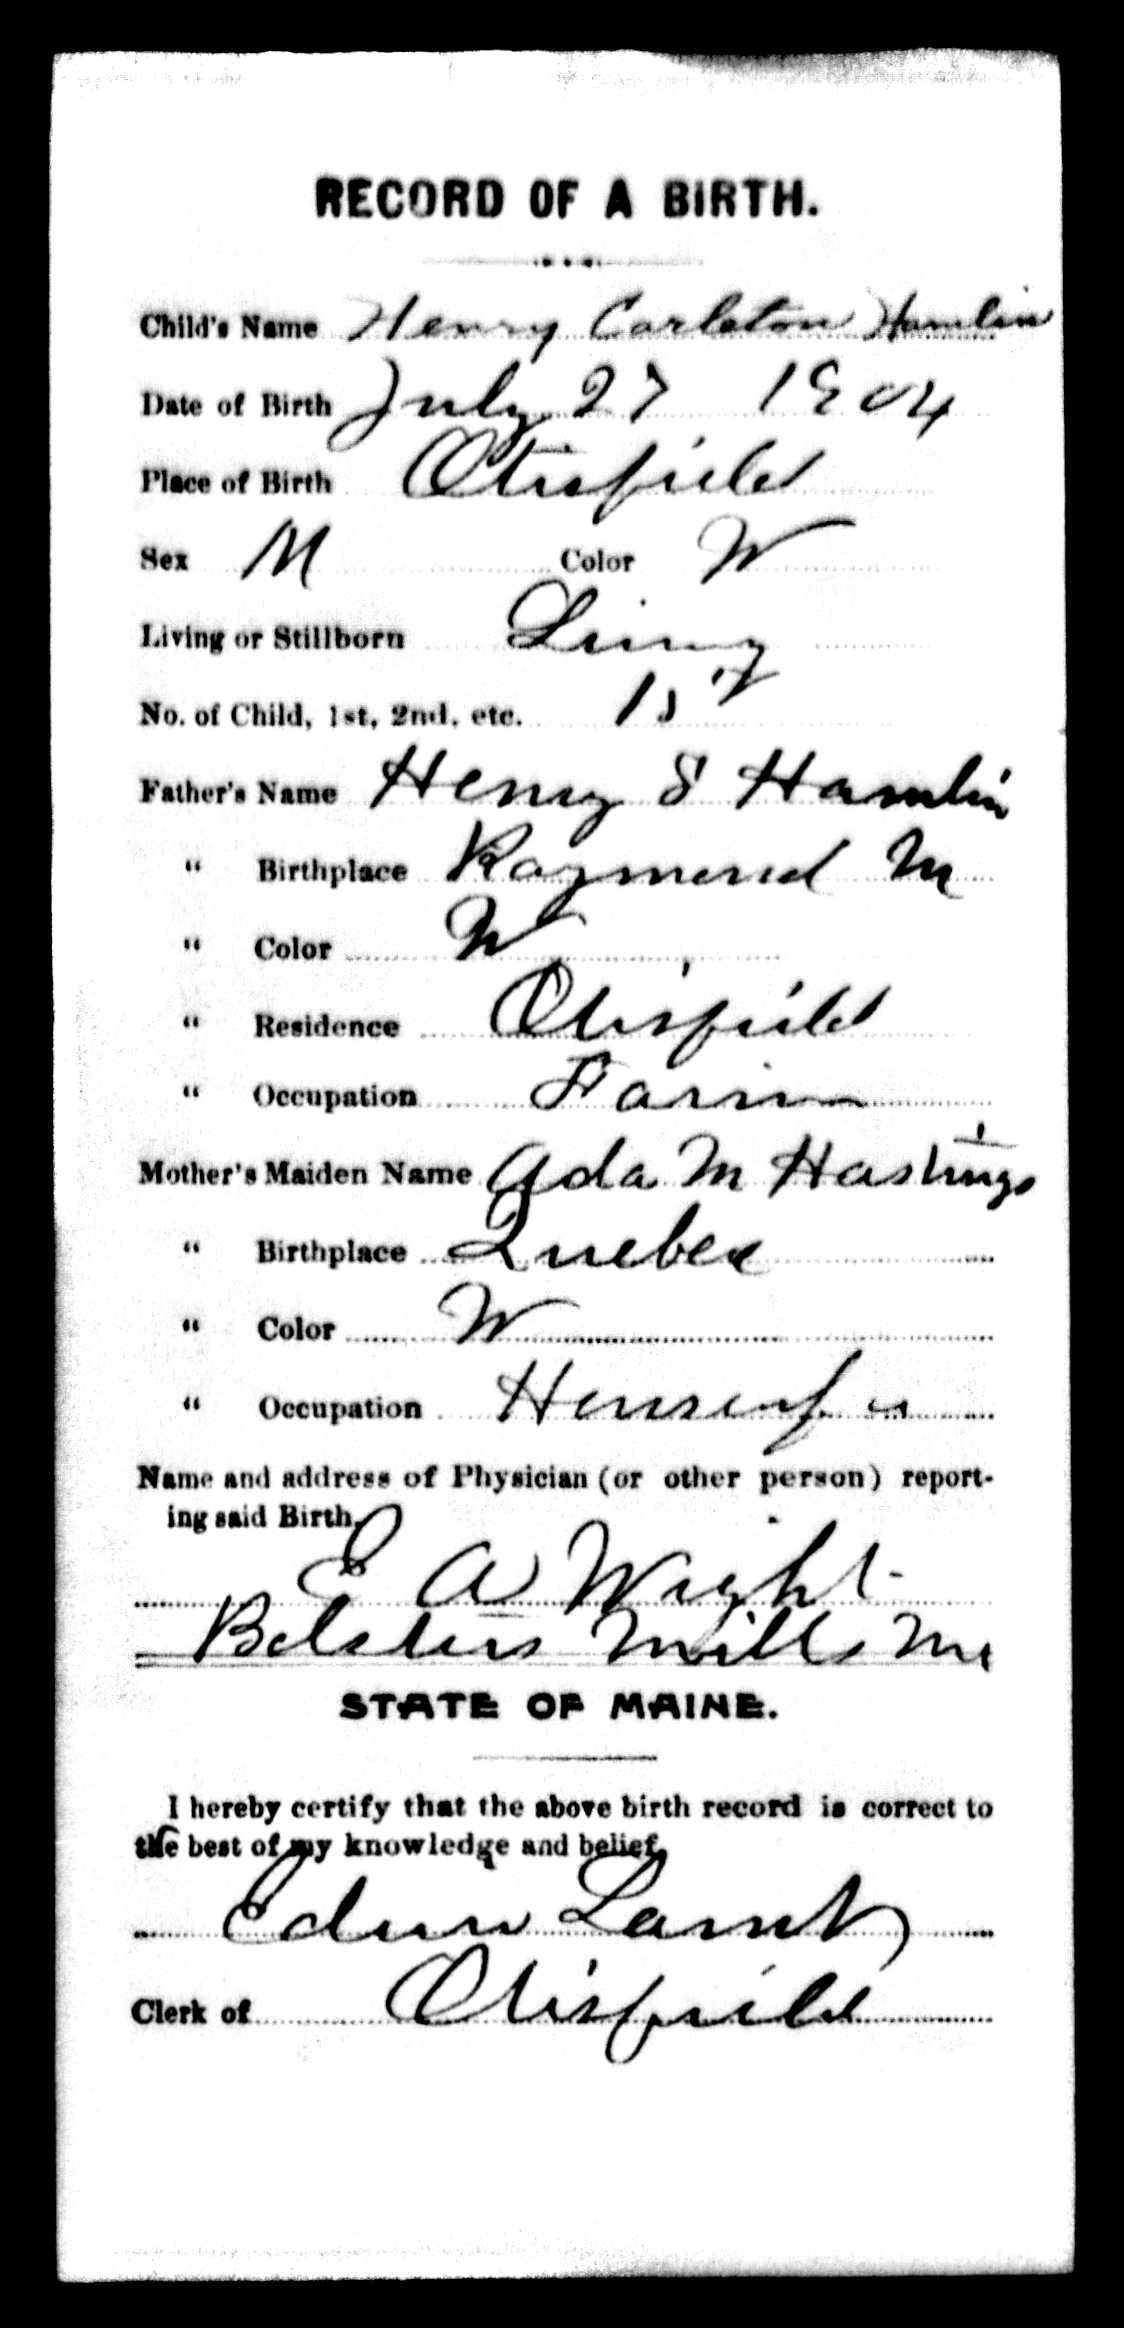 RECORD OF A BIRTH.
Child's Name Henry Carleton Hamlin
Date of Birth July 27 1904
Place of Birth Otisfield
Sex M Color W
Living or Stillborn Living
No. of Child, 1st, 2nd, etc. 1st
Father's Name Henry S Hamlin
" Birthplace Raymond M
" Color W
" Residence Otisfield
" Occupation Farmer
Mother's Maiden Name Ada M Hastings
" Birthplace Quebec
" Color W
" Occupation
Name and address of Physician (or other person) report-
ing said Birth.
E A Wight
Bolsters Mills Me
STATE OF MAINE.
I hereby certify that the above birth record is correct to
the best of my knowledge and belief.
Edwin Lamb
Clerk of Otisfield